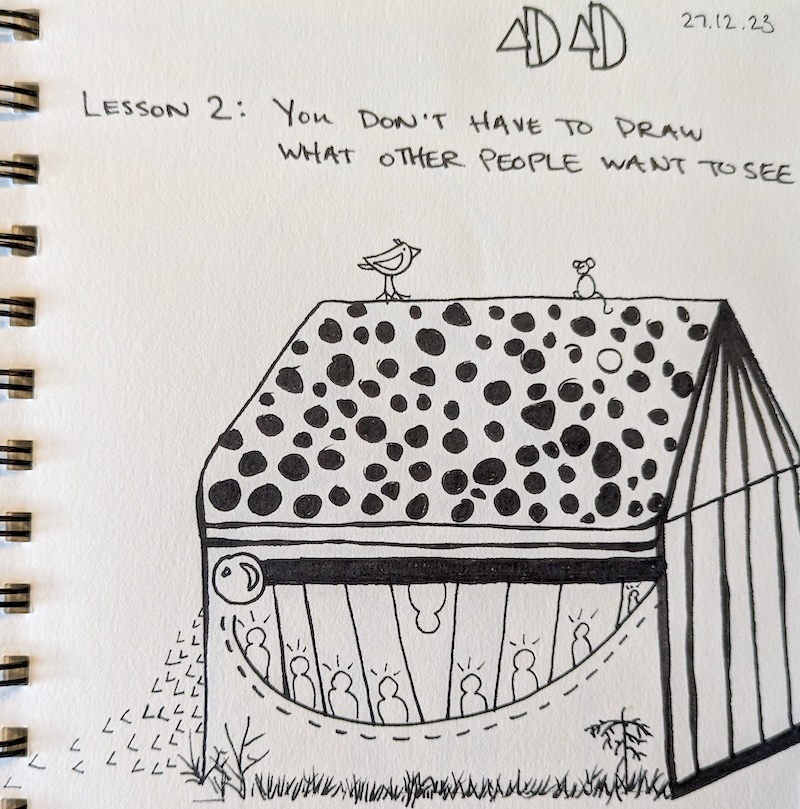 27.12.23
LESSON 2: YOU DON'T HAVE TO DRAW
WHAT OTHER PEOPLE WANT TO SEE